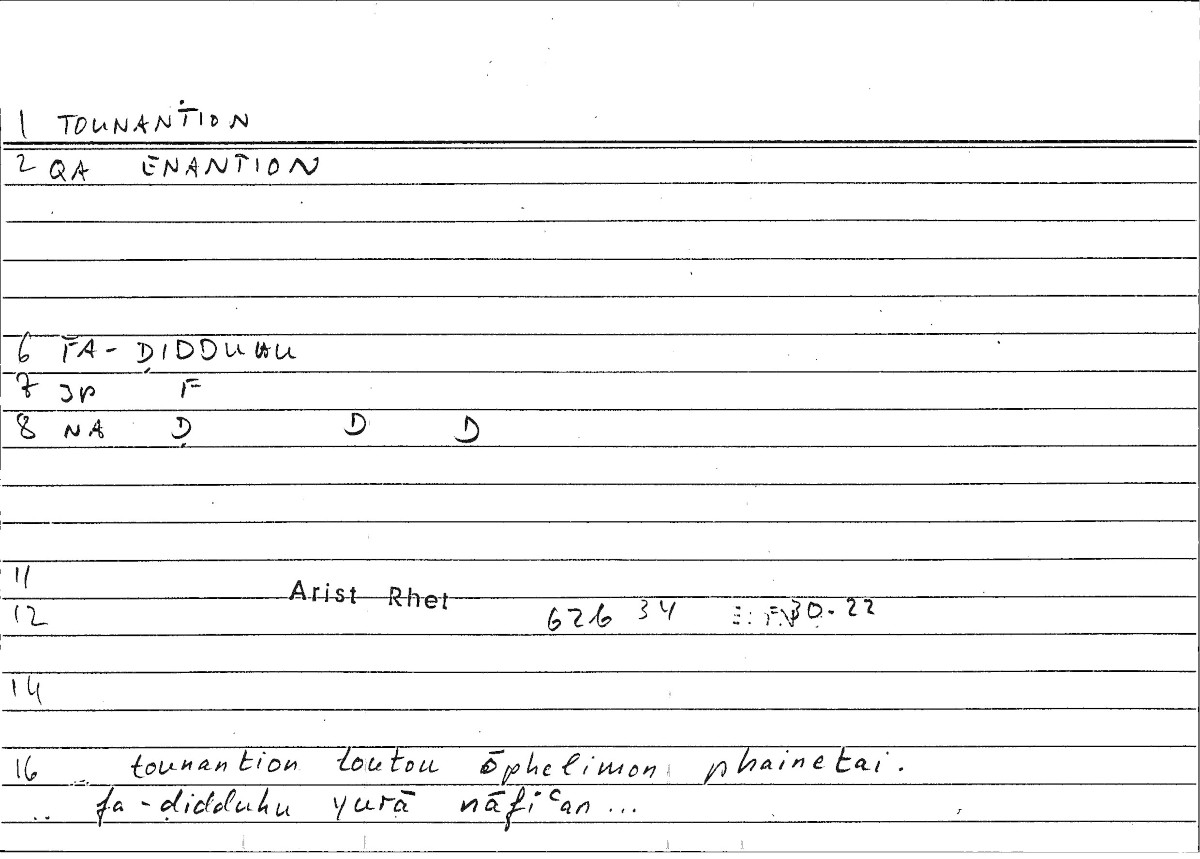 1 TOUNANTION
2 QA ENANTION
6 FA-ḌIDDUHU
7 JP F
8 NA Ḍ D D
11
Arist Rhet
12 62b 34 30.22
14
16 tounantion toutou ōphelimon phainetai.
.. fa-ḍidduhu yurā nāfiᶜan ...